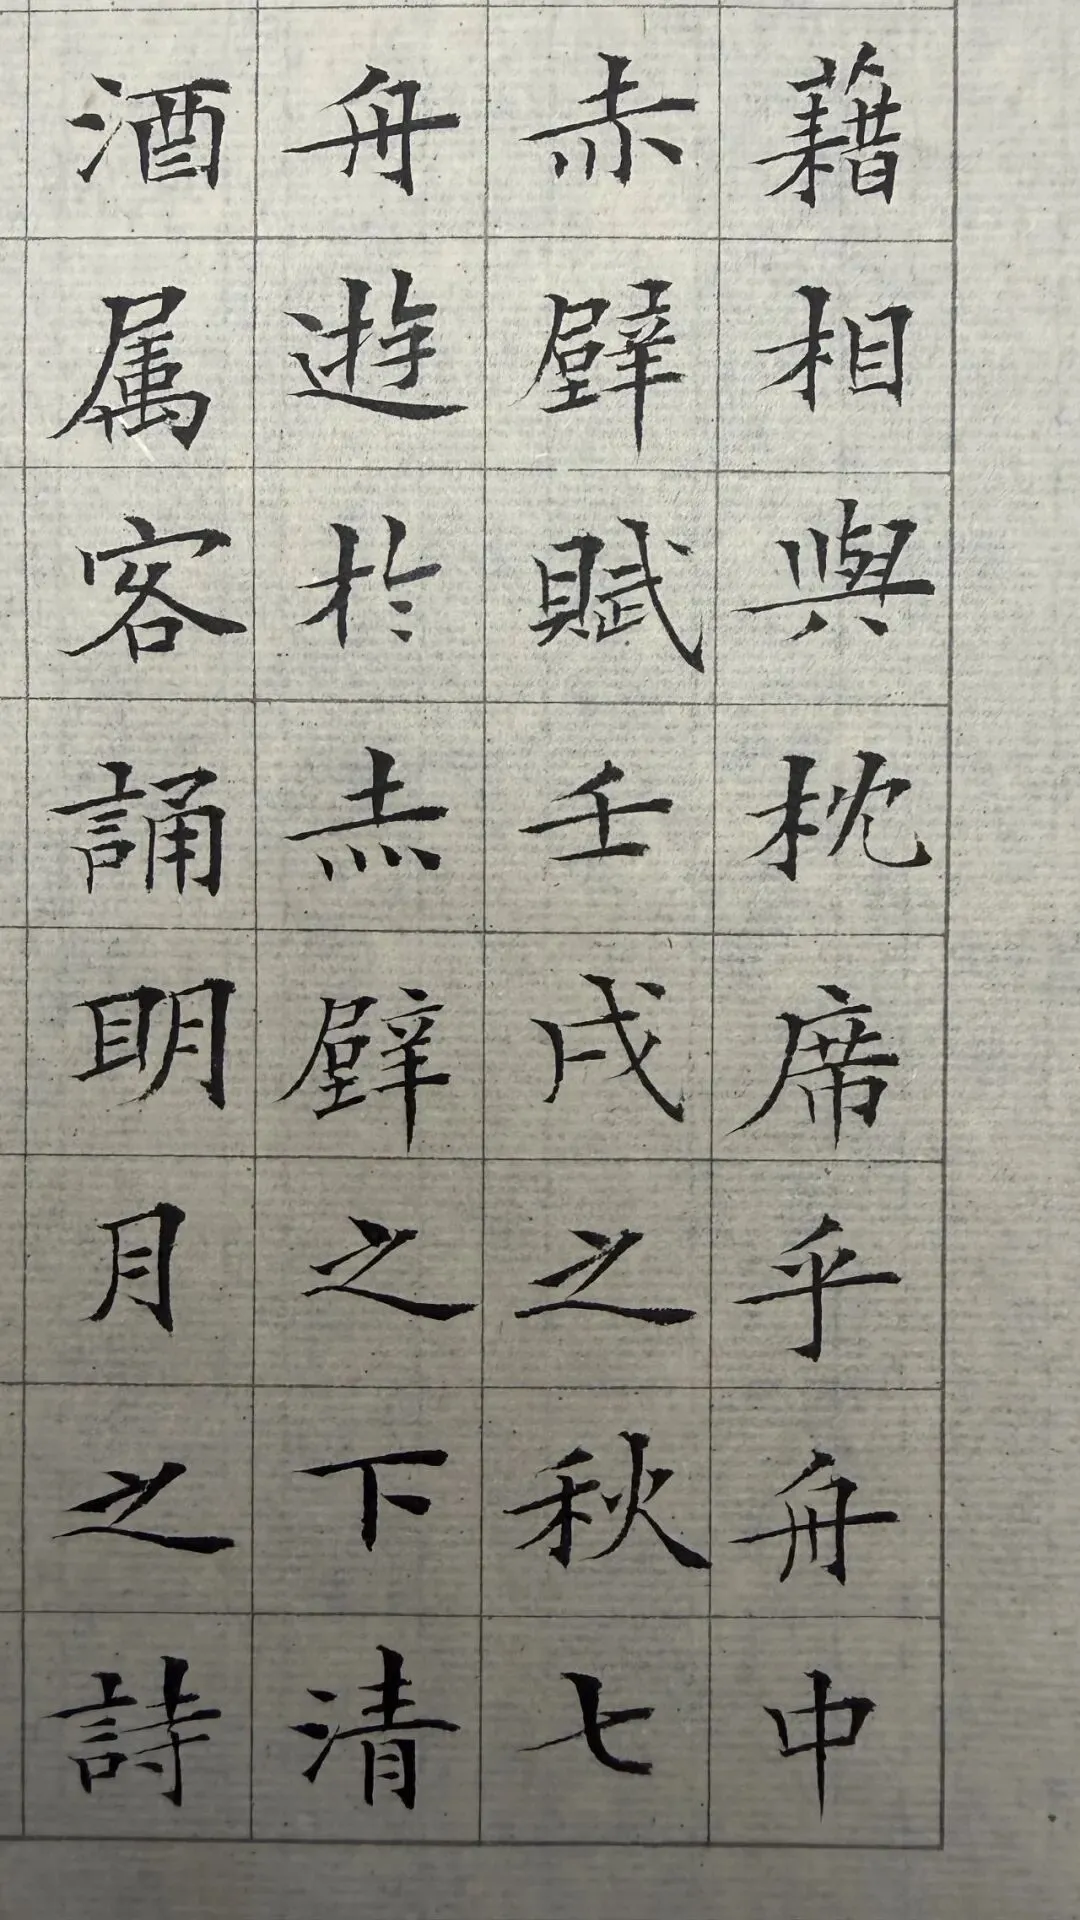 藉相與枕席乎舟中
赤壁賦壬戌之秋七
舟遊於赤壁之下清
酒属客誦明月之詩